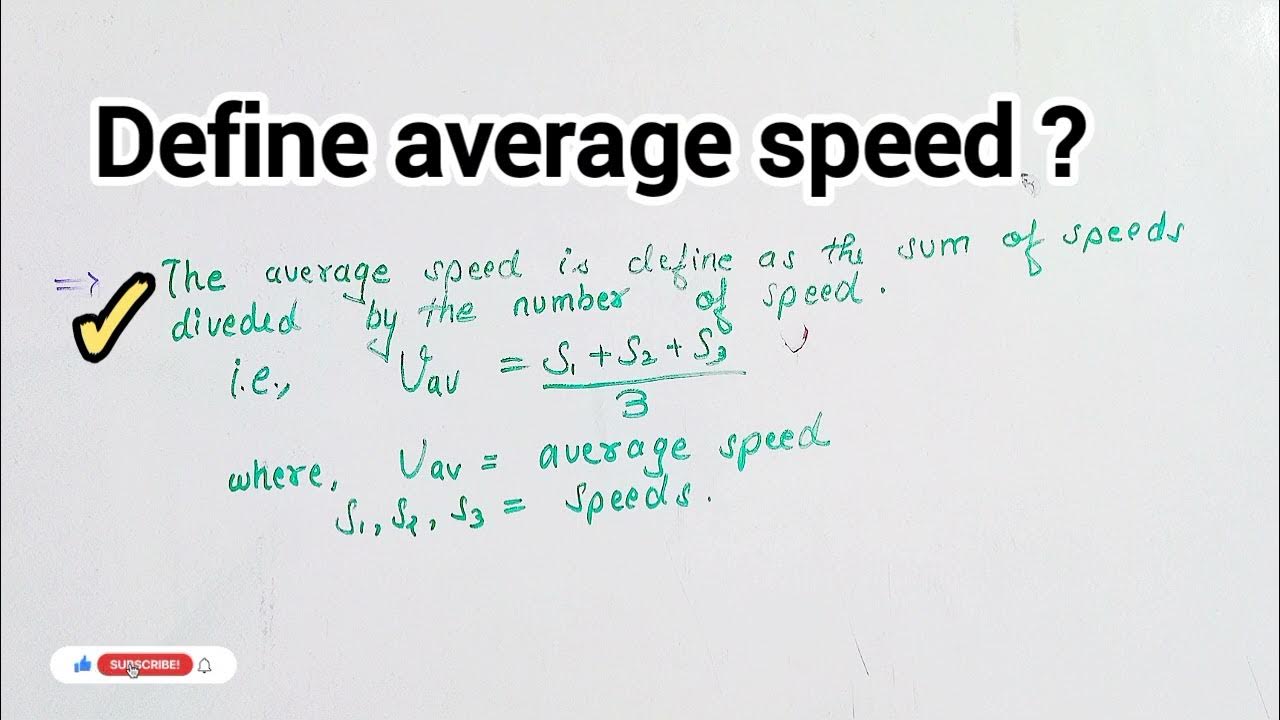 Define average speed ?
=> The average speed is define as the sum of speeds
diveded by the number of speed.
i.e., Uav = S₁ + S₂ + S₃
3
where, Uav = average speed
S₁, S₂, S₃ = speeds.
SUBSCRIBE!